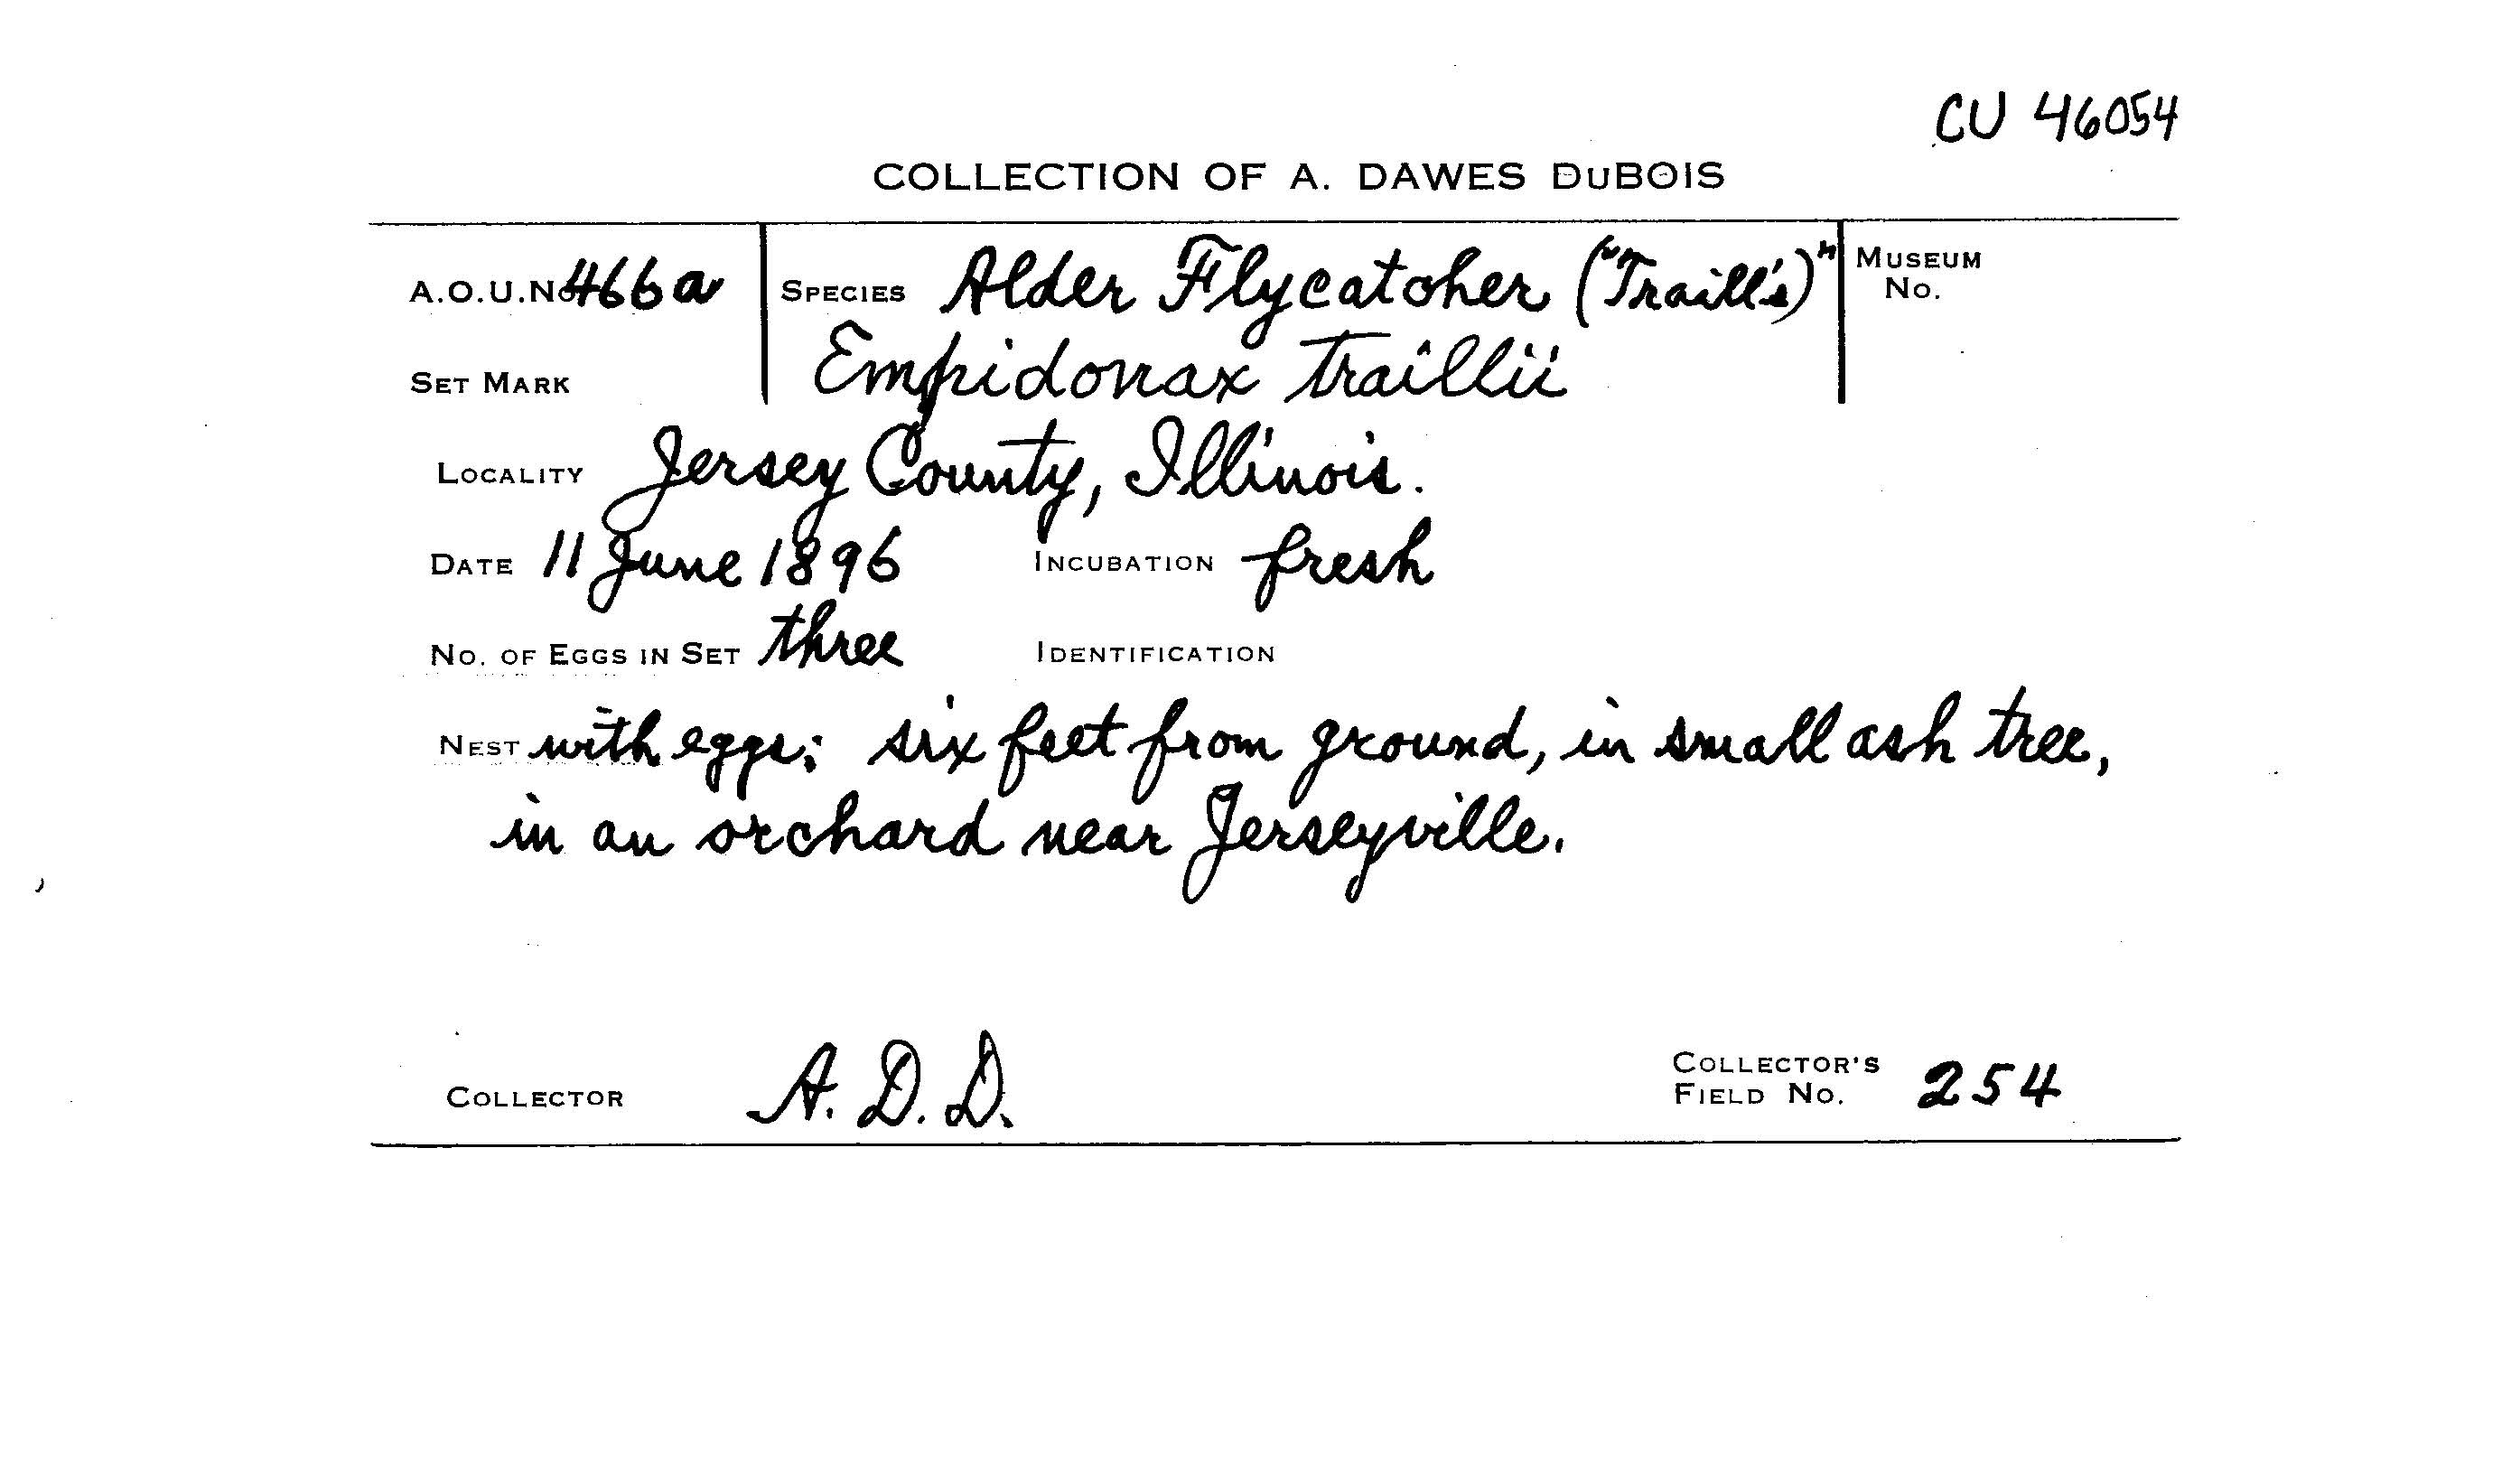 CU 46054
COLLECTION OF A. DAWES DuBOIS
A.O.U.No 466a SPECIES Alder Flycatcher ("Traill's)" MUSEUM No.
SET MARK Empidonax Traillii
LOCALITY Jersey County, Illinois.
DATE 11 June 1896 INCUBATION fresh
NO. OF EGGS IN SET three IDENTIFICATION
NEST with eggs; six feet from ground, in small ash tree,
in an orchard near Jerseyville.
COLLECTOR A. D. D. COLLECTOR'S FIELD NO. 254